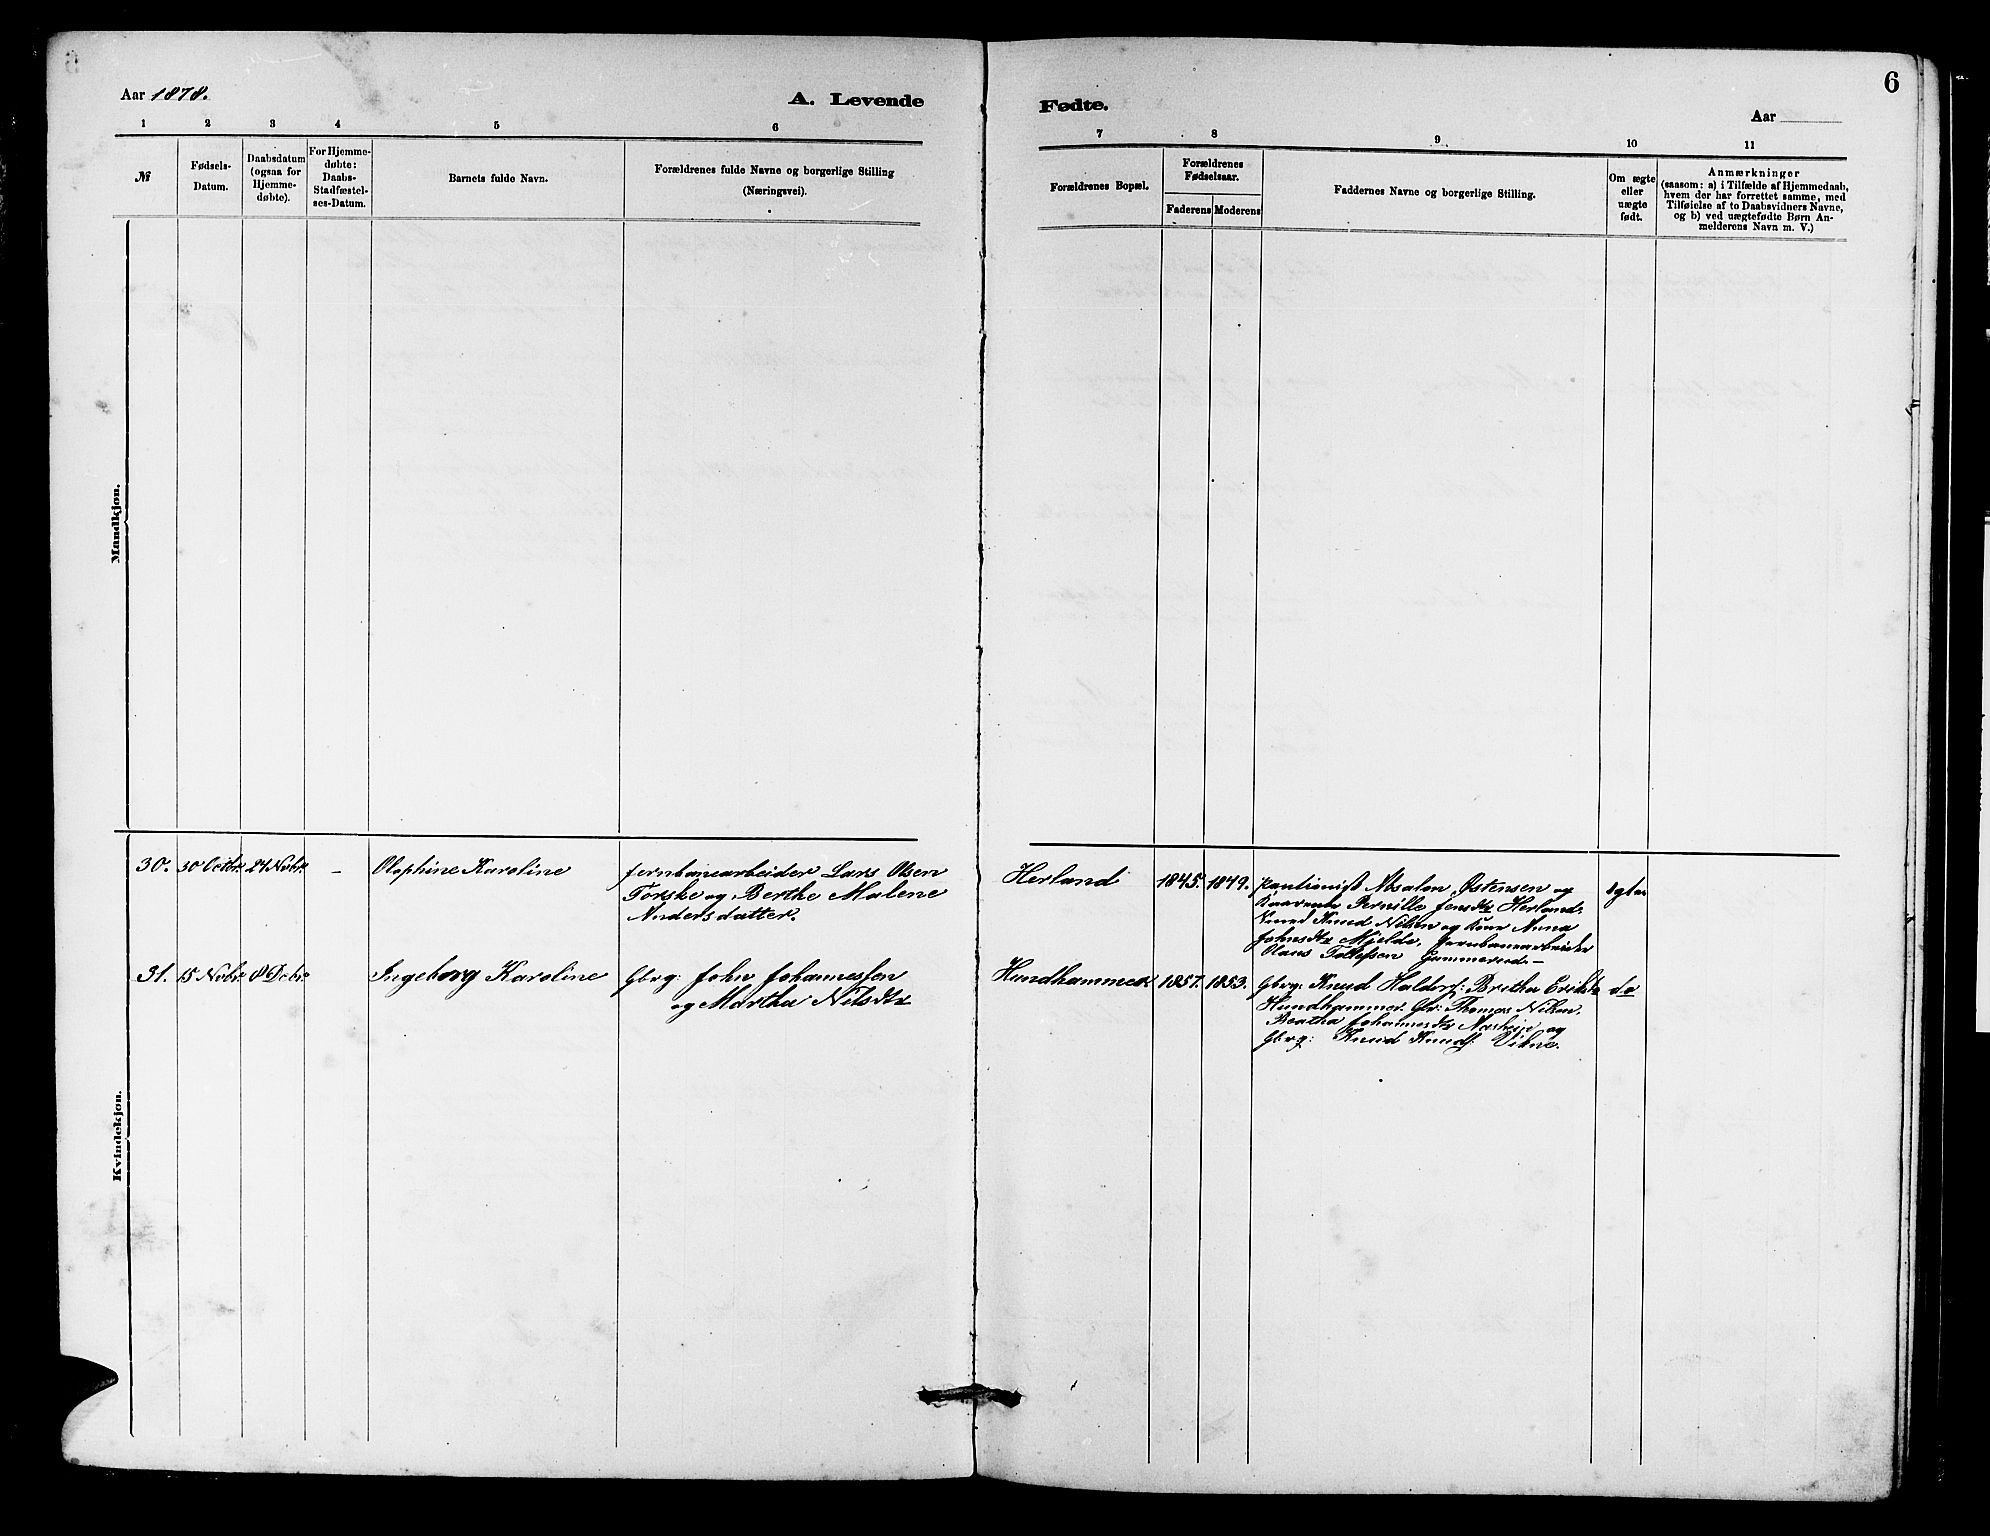 6
Aar 1878.
A. Levende
Fødte.
Aar
1 2 3 4 5 6
7 8 9 10 11
№
Fødsels-
Datum.
Daabsdatum
(ogsaa for
Hjemme-
døbte).
For Hjemme-
døbte:
Daabs-
Stadfæstel-
ses-Datum.
Barnets fulde Navn.
Forældrenes fulde Navne og borgerlige Stilling
(Næringsvei).
Forældrenes Bopæl.
Forældrenes
Fødselsaar.
Faderens Moderens
Faddernes Navne og borgerlige Stilling.
Om ægte
eller
uægte
født.
Anmærkninger
(saasom: a) i Tilfælde af Hjemmedaab,
hvem der har forrettet samme, med
Tilføielse af to Daabsvidners Navne,
og b) ved uægtefødte Børn An-
melderens Navn m. V.)
Mandkjøn.
Kvindekjøn.
30.
30 Octbr.
24 Nvbr.
-
Olophine Karoline
Jernbanearbeider Lars Olsen
Torske og Berthe Malene
Andersdatter.
Herland
1845.
1849.
Absalon Østensen og
Pernille Jensdtr Herland.
Knud Nilsen og Kone Anna
Johnsdtr Mjelde, Jernbanearbeider
Olaus Tollefsen Gummerud.-
31.
15 Nvbr.
8 Dcbr.
Ingeborg Karoline
Gbrg: John Johannessen
og Martha Nilsdtr
Hundhammeren
1857.
1853.
Gbrg: Knud Haldorf: Britha Eriksd
Hundhammer. Thomas Nilsen.
Beatha Johannesdtr og
Gbrg: Knud Knudf: Vikne.
do